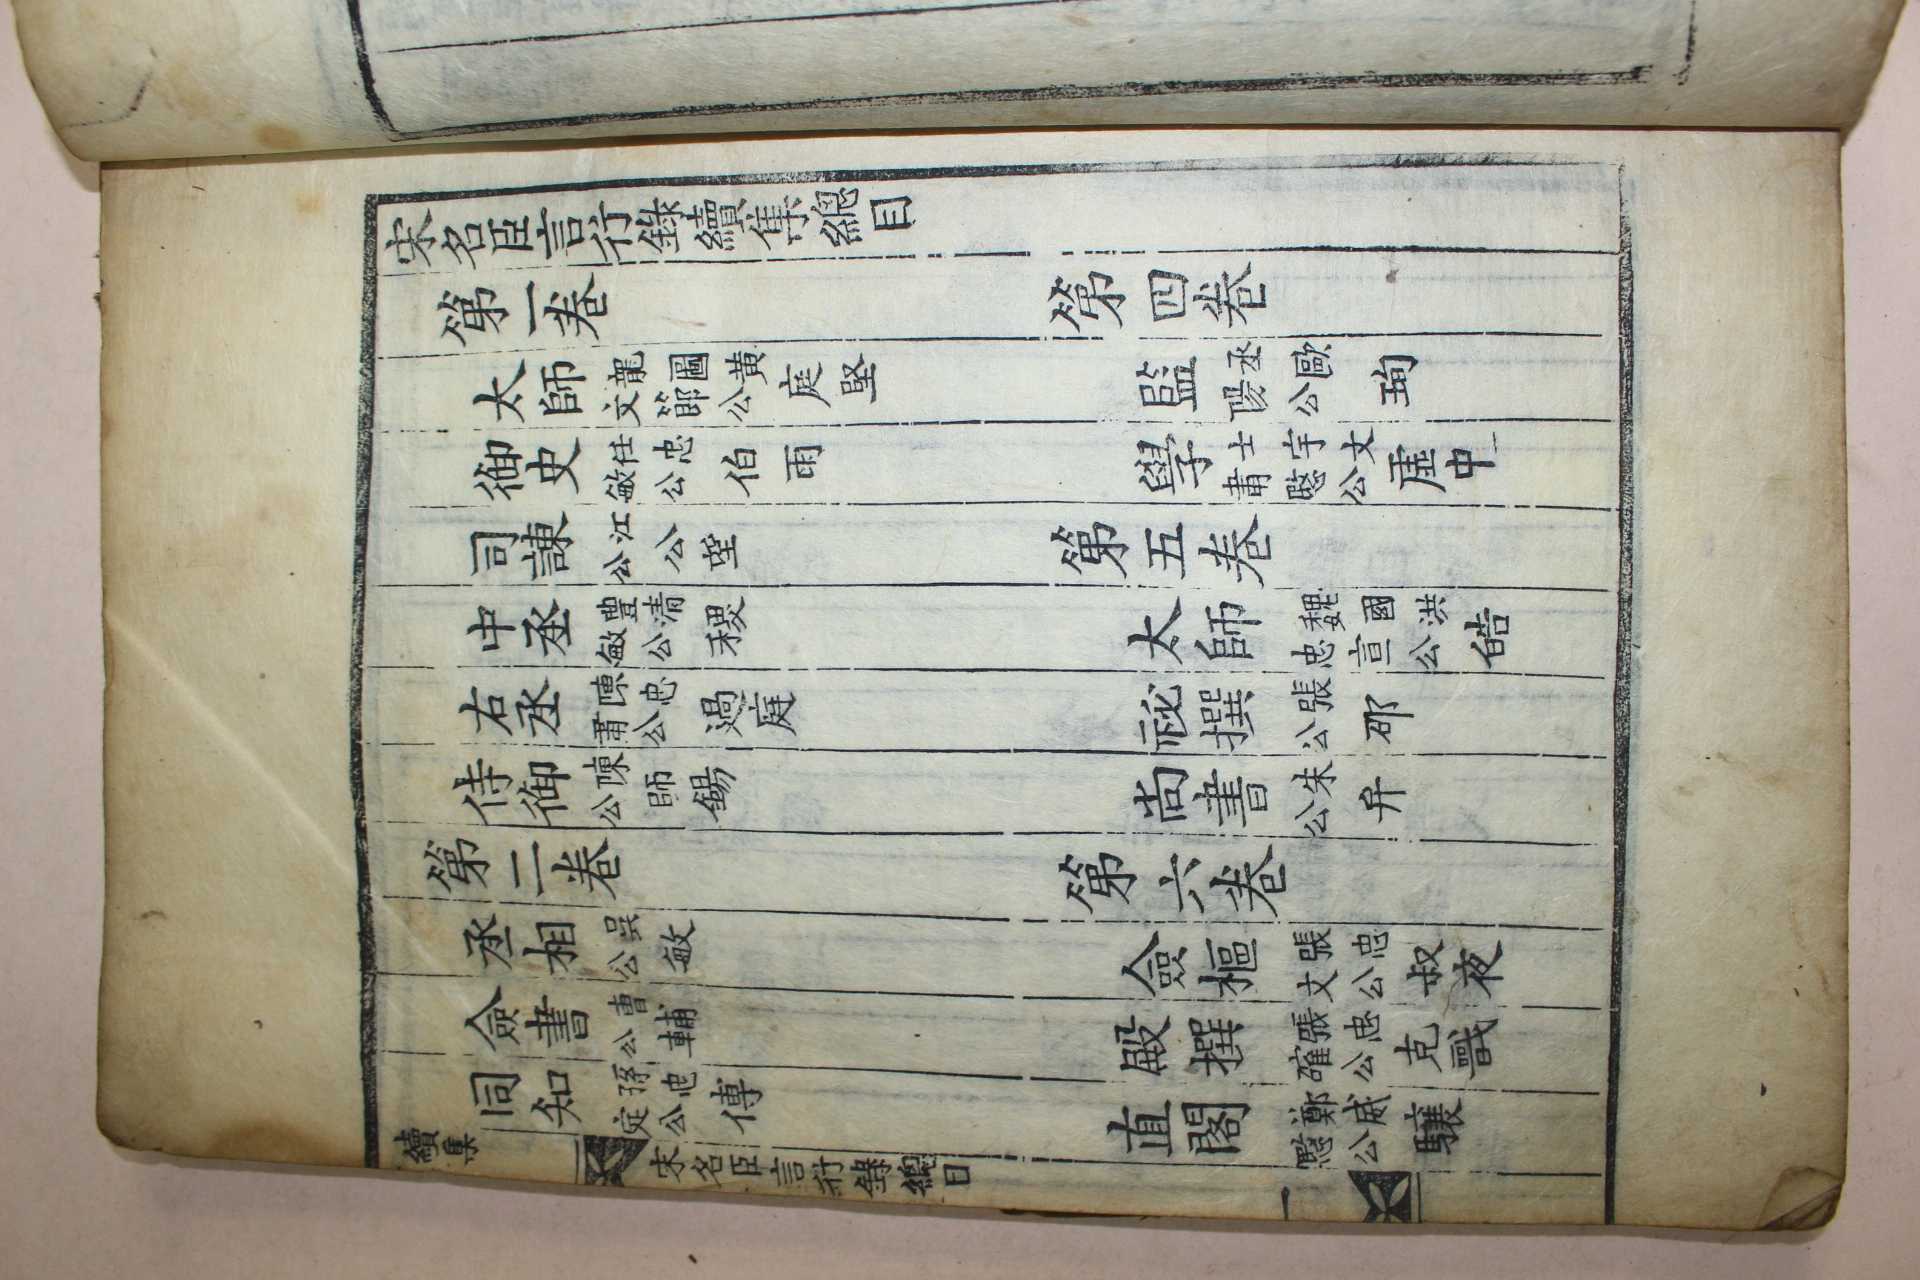 宋名臣言行錄續集總目
第一卷 第四卷
太師龍圖黃文節公庭堅 監丞歐陽公珣
御史任忠敏公伯雨 學士宇文肅愍公虛中
司諫江公公望 第五卷
中丞豐清敏公稷 太師魏國洪忠宣公皓
右丞陳忠肅公過庭 祕撰張公邵
侍御陳公師錫 尚書朱公弁
第二卷 第六卷
丞相吳公敏 僉樞張忠文公叔夜
僉書曹公輔 殿撰張忠確公克戩
同知孫忠定公傅 直閣鄭威愍公驤
續集 宋名臣言行錄總目 一